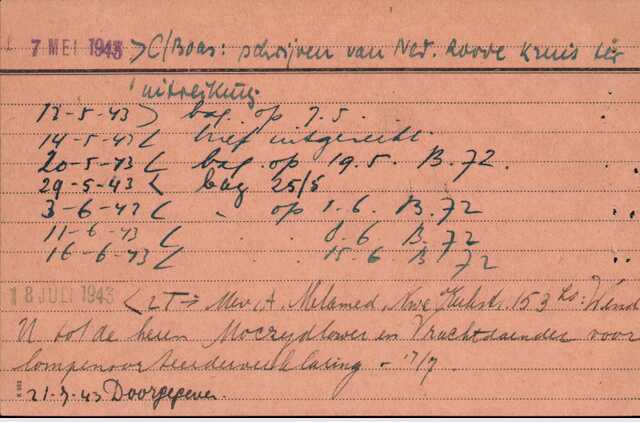 7 MEI 1943 > C/Boas: schrijven van Ned. Roode Kruis ter
uitreiking.
12-5-43 > bag. op 7.5.
14-5-43 < brief uitgereikt.
20-5-43 < bag. op 19.5. B.72.
29-5-43 < bag 25/5
3-6-43 < " op 1-6. B.72
11-6-43 < " " 8-6 B.72
16-6-43 < " " 15-6 B 72
18 JULI 1943 < 2T → Mevr. A. Melamed, Nwe 153 hs: Wend
U tot de heeren en voor
- 17/7.
21-7-43 Doorgegeven.